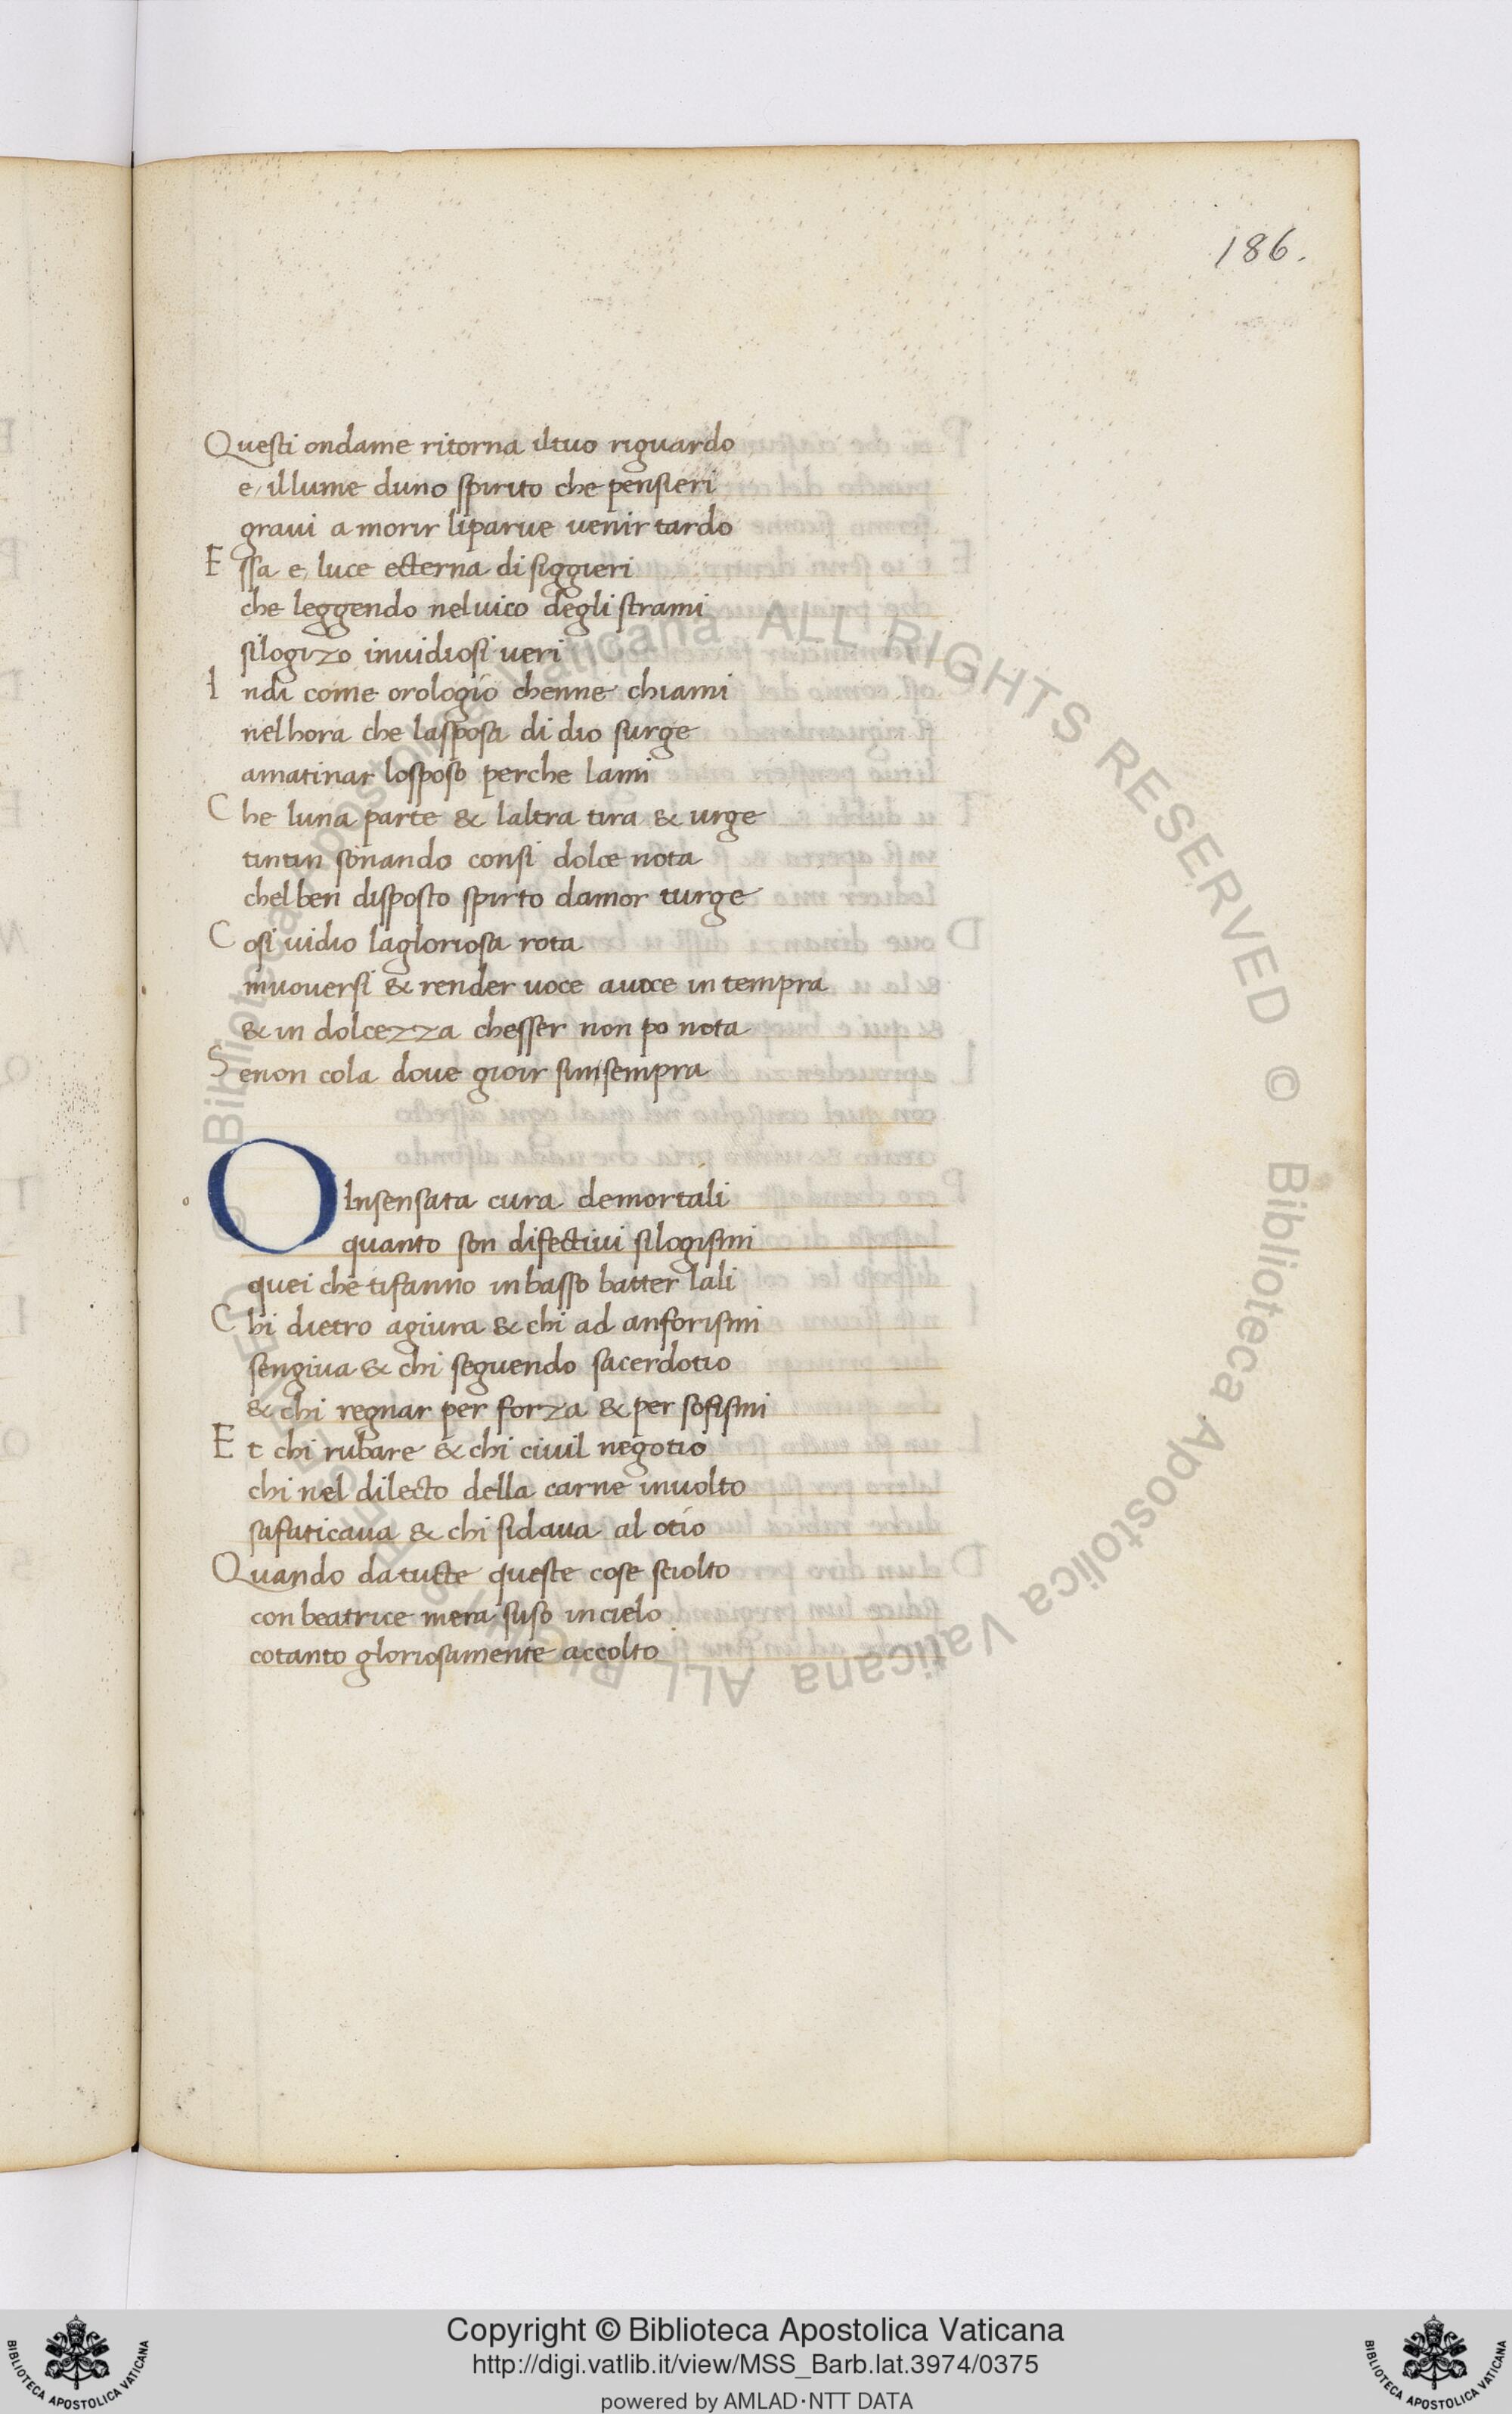 186.
Questi ondame ritorna iltuo riguardo
e, illume duno spirito che pensieri
graui a morir liparue uenir tardo
E ssa e, luce ecterna di siggieri
che leggendo neluico degli strami
silogizo inuidiosi ueri
I ndi come orologio chenne chiami
nelhora che lasposa di dio surge
amatinar losposo perche lami
C he luna parte & laltra tira & urge
tintin sonando consi dolce nota
chelben disposto spirto damor turge
C osi uidio lagloriosa rota
muouersi & render uoce auoce in tempra
& in dolcezza chesser non po nota
S enon cola doue gioir sinsempra
O Insensata cura demortali
quanto son difectiui silogismi
quei che tifanno inbasso batter lali
C hi dietro agiura & chi ad anforismi
sengiua & chi seguendo sacerdotio
& chi regnar per forza & per sofismi
E t chi rubare & chi ciuil negotio
chi nel dilecto della carne inuolto
safaticaua & chi sidaua al otio
Quando da tucte queste cose sciolto
con beatrice mera suso incielo
cotanto gloriosamente accolto
© Biblioteca Apostolica Vaticana ALL RIGHTS RESERVED © Biblioteca Apostolica Vaticana ALL RIGHTS RESERVED
Copyright © Biblioteca Apostolica Vaticana
http://digi.vatlib.it/view/MSS_Barb.lat.3974/0375
powered by AMLAD·NTT DATA
BIBLIOTECA APOSTOLICA VATICANA
BIBLIOTECA APOSTOLICA VATICANA